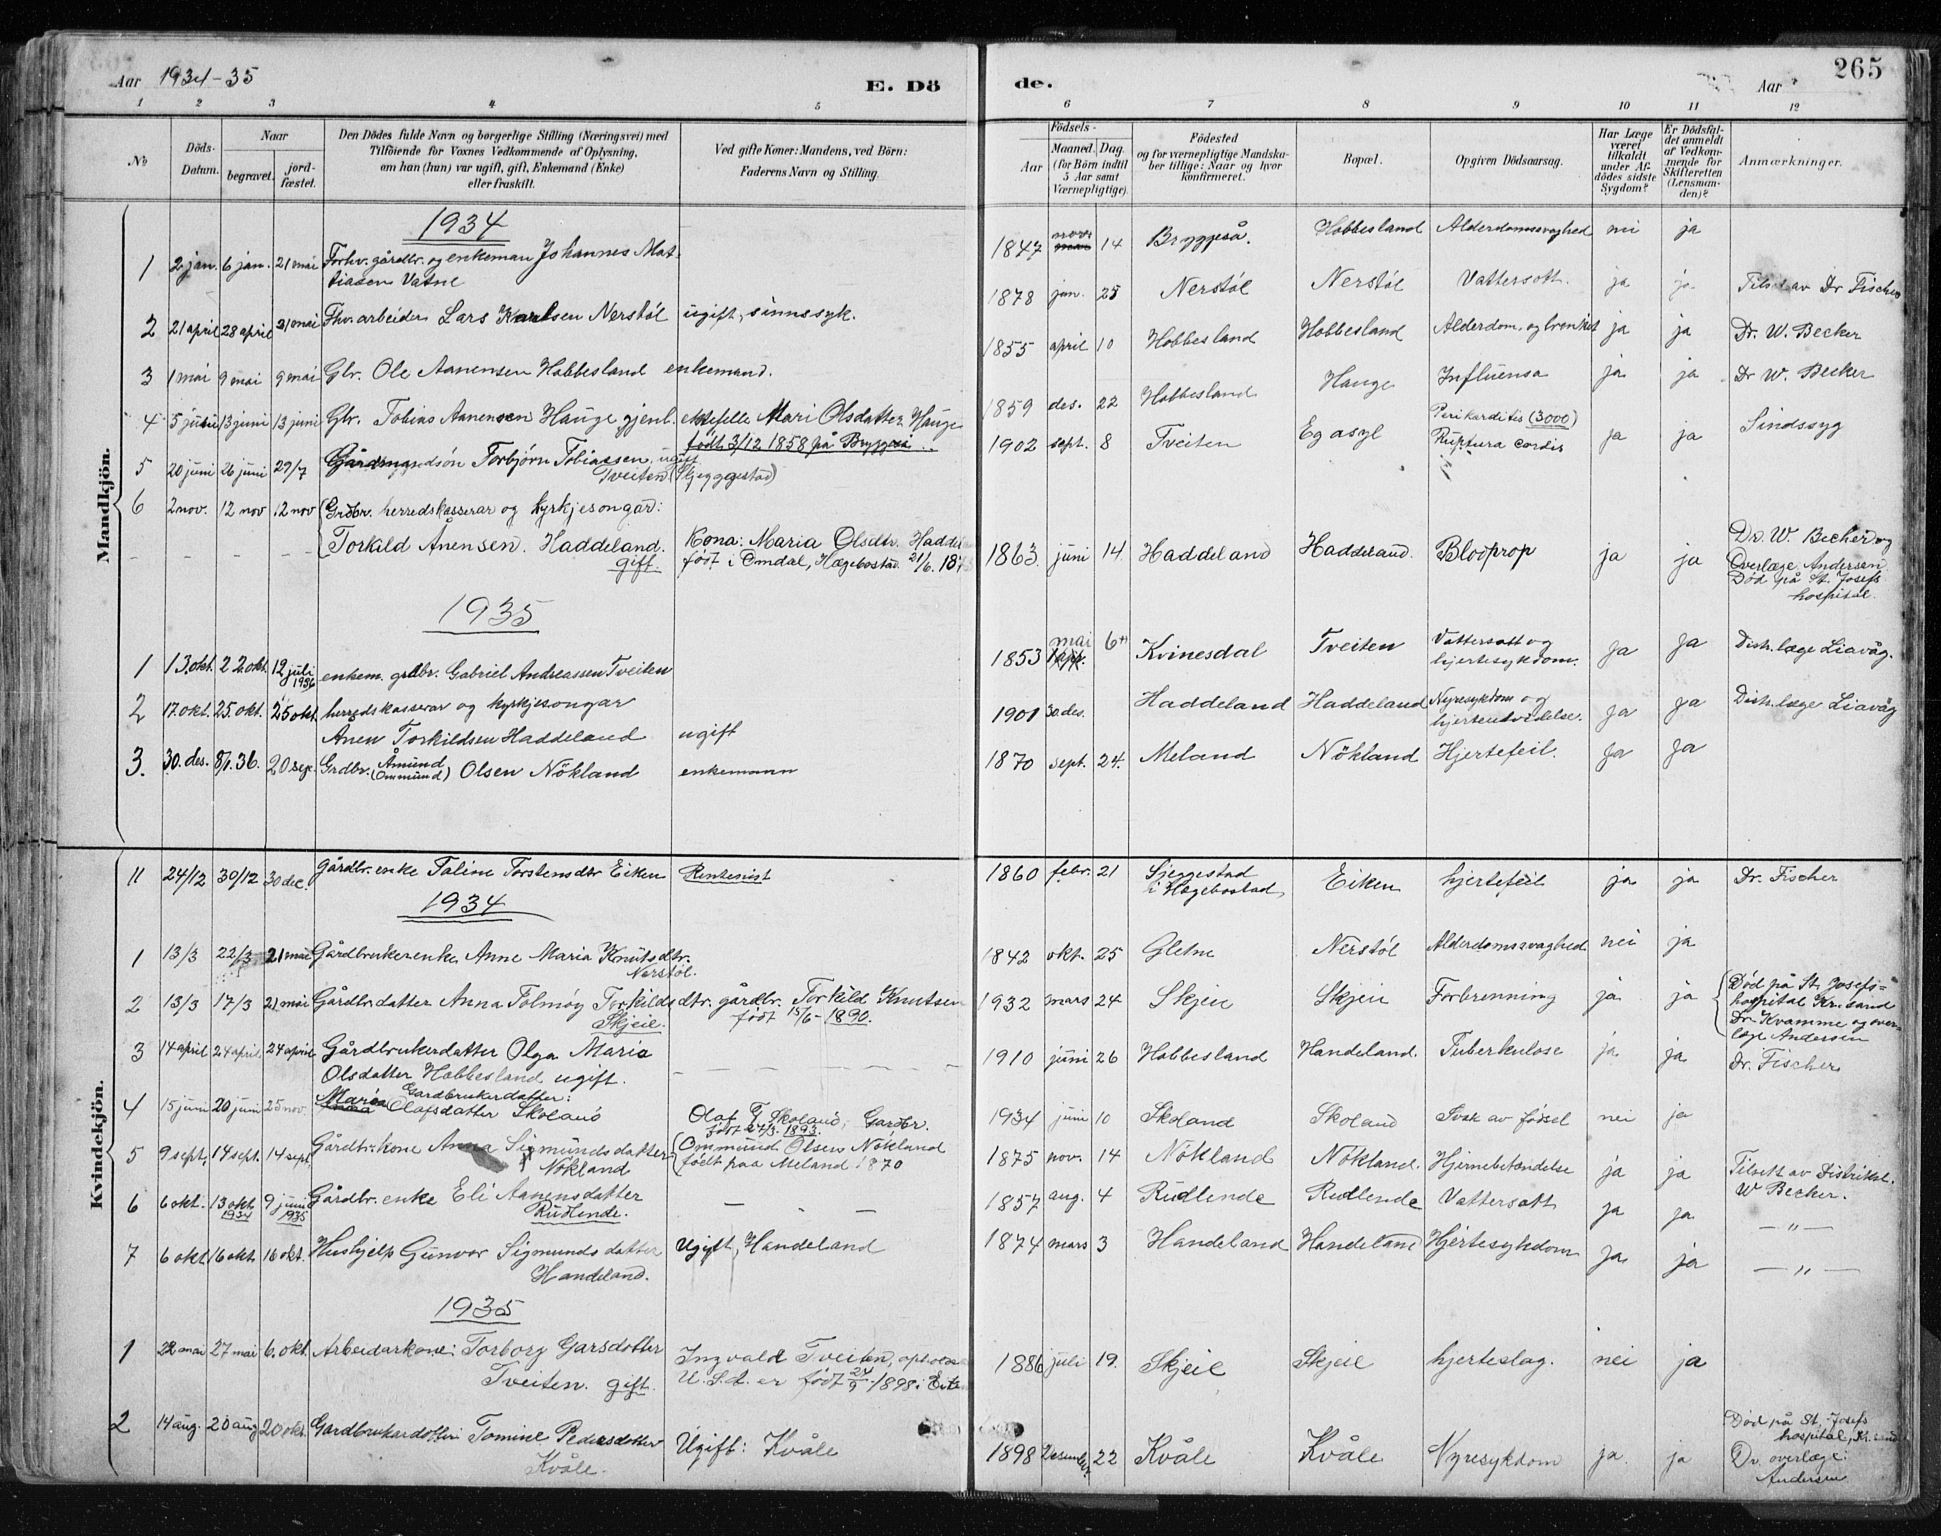 Aar 1934-35
E. Dö
de.
Aar
265
1 2 3 4 5 6 7 8 9 10 11 12
No
Döds-
Datum.
Naar
begravet.
jord-
fæstet.
Den Dödes fulde Navn og borgerlige Stilling (Næringsvei) med
Tilföiende for Voxnes Vedkommende af Oplysning,
om han (hun) var ugift, gift, Enkemand (Enke)
eller fraskilt.
Ved gifte Koner: Mandens, ved Börn:
Faderens Navn og Stilling.
Födsels-
Aar
Maaned. Dag.
(for Börn indtil
5 Aar samt
Værnepligtige)
Födested
og for værnepligtige Mandska-
ber tillige: Naar og hvor
konfirmeret.
Bopæl.
Opgiven Dödsaarsag.
Har Læge
været
tilkaldt
under Af-
dödes sidste
Sygdom?
Er Dödsfal-
det anmeldt
af Vedkom-
mende for
Skifteretten
(Lensman-
den)?
Anmærkninger.
Mandkjön.
1934
1 2 jan. 6 jan. 21 mai Forhv. gårdbr. og enkeman Johannes Mat-
tiasen Vatne
1847 nov. 14 Bryggeså. Hobbesland Alderdomssvaghed nei ja
2 21 april 28 april 21 mai Fhv. arbeider Lars Karlsen Nerstöl ugift, sinnssyk.
1878 jan. 25 Nerstöl Nerstöl Vattersott. ja ja Dr Fischer
3 1 mai 9 mai 9 mai Gbr. Ole Aanensen Hobbesland enkemand.
1855 april 10 Hobbesland Hobbesland Alderdom, og bronkit ja ja Dr. W. Becker
4 5 juni 13 juni 13 juni Gbr. Tobias Aanensen Hauge gjenl. ektefelle Mari Olsdatter Hauge
født 3/12 1858 på Bryggeså
1859 des. 22 Hobbesland Hauge Influensa ja ja Dr W. Becker
5 20 juni 26 juni 29/7 Torbjörn Tobiassen, ugift
Tveiten (Skjeggestad)
1902 sept. 8 Tveiten Eg asyl Perikarditis (3000)
Ruptura cordis ja ja Sindssyg
6 2 nov. 12 nov 12 nov Grdbr. herredskasserar og kyrkjesongar:
Torkild Ånensen. Haddeland.
gift.
Kona: Maria Olsdtr.
født i Omdal, Hægebostad 21/6.
1863 juni 14. Haddeland Haddeland. Blodprop ja ja Dr. W. Becher og
Overlæge Andersen
Død på St. Josefs
hospital.
1935
1 13. okt. 22. okt. 12 juli
1936 enkem. grdbr. Gabriel Andreassen Tveiten
1853 mai 6 Kvinesdal Tveiten Vattersott og
hjertesykdom. ja ja Distr. læge Liavåg.
2 17. okt. 25. okt. 25 okt. herredskasserar og kyrkjesongar
Ånen Torkildsen Haddeland ugift
1901 30. des. Haddeland Haddeland Nyresykdom og
hjerteutvidelse. ja ja Distr. læge Liavåg
3. 30. des. 8/1. 36. 20 sep. Grdbr. Åmund
(Ommund) Olsen Nökland enkemann
1870 sept. 24. Meland Nökland Hjertefeil. ja ja
Kvindekjön.
11 24/12 30/12 30 dec. gårdbr. enke Taline Torstensdtr Eiken Rentenist
1860 febr. 21 Sjeggestad
i Hægebostad, Eiken hjertefeil ja ja Dr. Fischer
1934
1 13/3 22/3 21 mai Gårdbrukerenke Anne Maria Knutsdtr.
Nerstöl.
1842 okt. 25 Gletne Nerstöl Alderdomssvaghed nei ja
2 13/3 17/3 21 mai Gårdbr. datter Anna Tolmøy Torkildsdtr. gårdbr. Torkild Knutsen
Skjeie. født 15/6-1890.
1932 mars 24 Skjeie Skjeie Forbrenning ja ja Død på St. Josefs-
hospital Kr. sand
Dr. Kvamme og over-
læge Andersen
3 14 april 24 april. 24 april Gårdbrukerdatter Olga Maria
Olsdatter Hobbesland ugift.
1910 juni 26 Hobbesland Handeland. Tuberkulose ja ja Dr. Fischer
4 15 juni 20 juni 25 nov. Gardbrukerdatter:
Maria Olafsdatter Skoland
Olaf T. Skoland, Gardbr.
født 24/3. 1893.
1934 juni 10 Skoland Skoland Svak av fødsel nei ja
5 9 sept. 14 sept. 14 sept. Gårdbr. kone Anna Sigmundsdatter
Nökland
Ommund Olsen Nökland
født paa Meland 1870
1875 nov. 14 Nökland Nökland. Hjernebetændelse ja ja
6 6 okt. 13 okt.
1934 9 juni
1935 Gårdbr. enke Eli Aanensdatter
Rudlende.
1857 aug. 4 Rudlende Rudlende Vattersott ja ja W Becker.
7 6 okt. 16 okt. 16 okt. Hushjelp Gunvor Sigmundsdatter
Handeland.
Ugift, Handeland
1874 mars 3 Handeland Handeland Hjertesykdom ja ja — „ —
1935
1 22 mai 27 mai 6. okt. Arbeidarkone: Torborg Garsdotter
Tveiten. gift.
Ingvald Tveiten,
U.S.A. er født 24/9 1898 i
1886 juli 19. Skjeie Skjeie hjerteslag. nei ja
2 14 aug. 20 aug 20 okt. Gardbrukardotter Tomine Pedersdotter
Kvåle.
Ugift: Kvåle
1898 Desember 22 Kvåle Kvåle Nyresykdom ja ja Død på St. Josefs
hospital,
Dr. overlæge:
Andersen